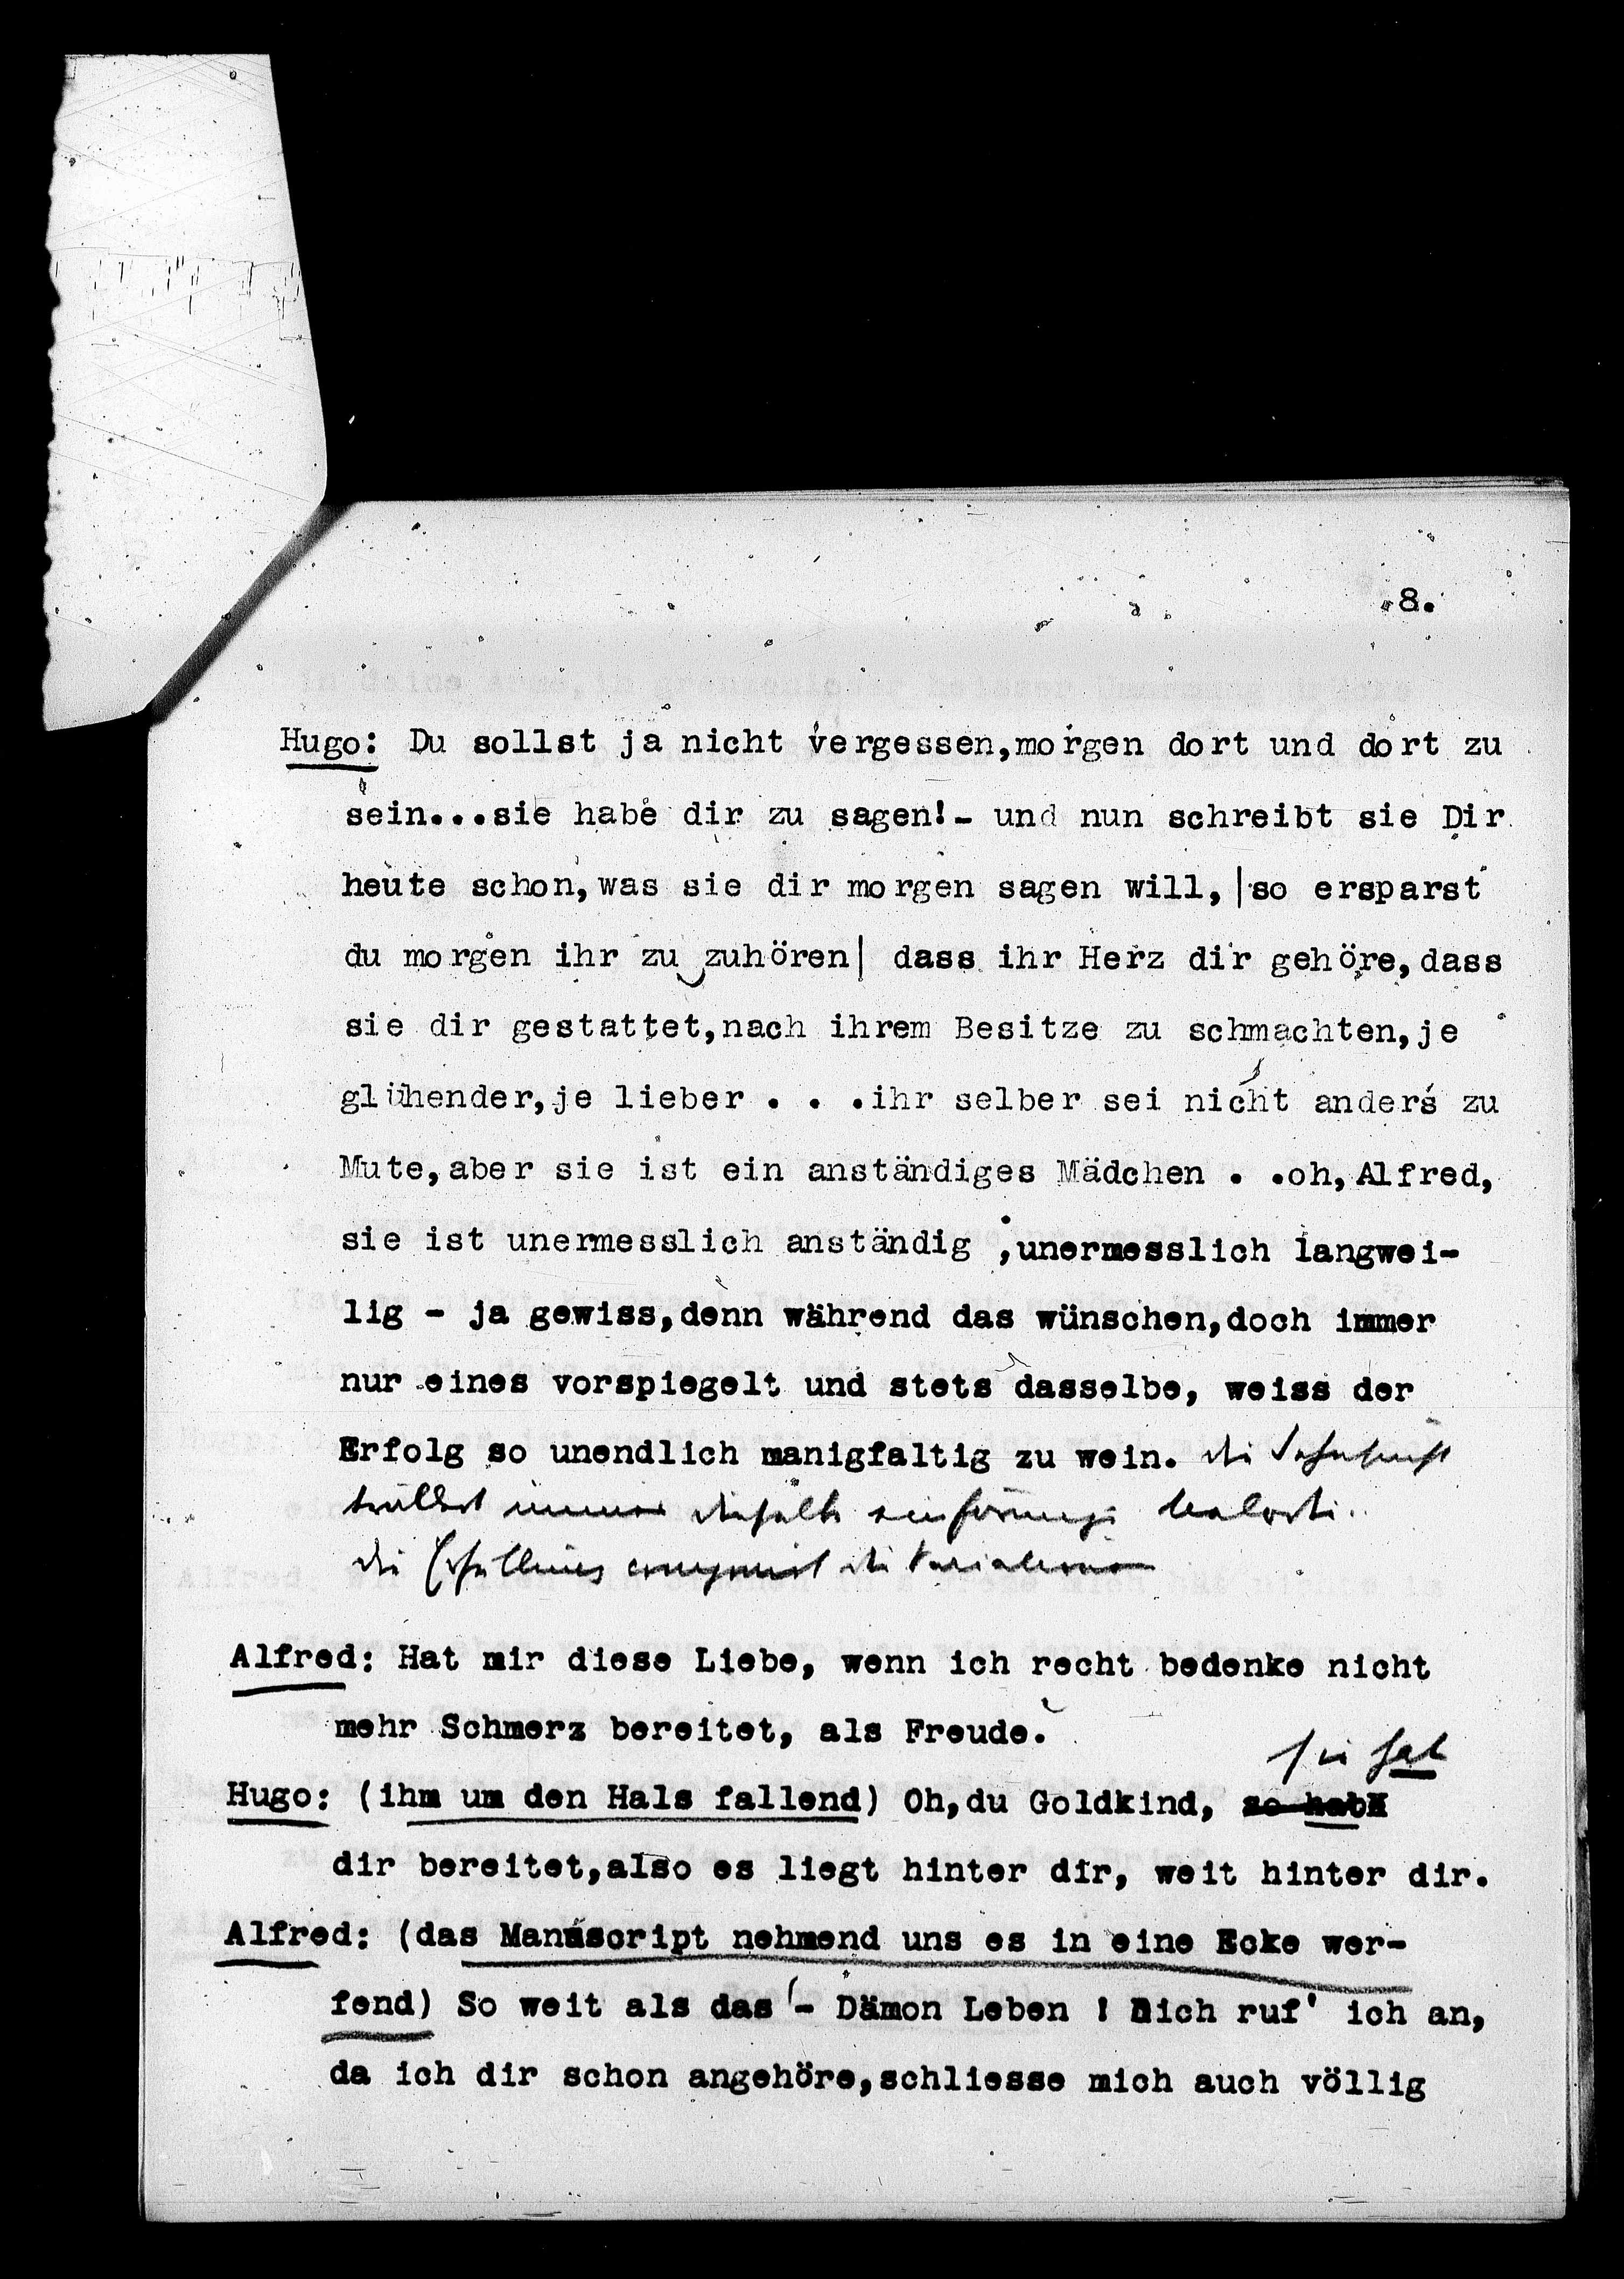 8.
Hugo: Du sollst ja nicht vergessen,morgen dort und dort zu
sein...sie habe dir zu sagen!- und nun schreibt sie Dir
heute schon,was sie dir morgen sagen will,|so ersparst
du morgen ihr zu zuhören| dass ihr Herz dir gehöre,dass
sie dir gestattet,nach ihrem Besitze zu schmachten,je
glühender,je lieber . . .ihr selber sei nicht anders zu
Mute,aber sie ist ein anständiges Mädchen . .oh,Alfred,
sie ist unermesslich anständig ,unermesslich langwei-
lig - ja gewiss,denn während das wünschen,doch immer
nur eines vorspiegelt und stets dasselbe, weiss der
Erfolg so unendlich manigfaltig zu wein. die Sehnsucht
trällert immer dieselbe einförmige
die Erfüllung componirt die Variationen
Alfred: Hat mir diese Liebe, wenn ich recht bedenke nicht
mehr Schmerz bereitet, als Freude.
sie hat
Hugo: (ihm um den Hals fallend) Oh,du Goldkind, so hat
dir bereitet,also es liegt hinter dir, weit hinter dir.
Alfred: (das Manuscript nehmend uns es in eine Ecke wer-
fend) So weit als das - Dämon Leben ! Dich ruf' ich an,
da ich dir schon angehöre,schliesse mich auch völlig